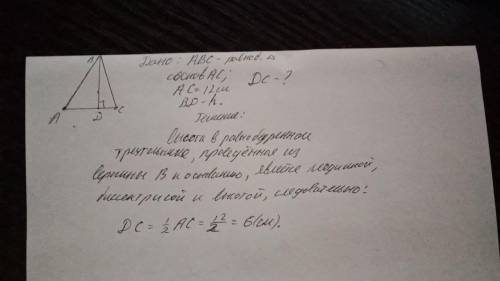 B
A
D
C
Дано: ABC - равноб. Δ
с основ AC;
AC = 12 см
BD - h.
DC - ?
Решение:
Высота в равнобедренном
треугольнике, проведённая из
вершины B к основанию, является медианой,
биссектрисой и высотой, следовательно:
DC = 1/2 AC = 12/2 = 6 (см).